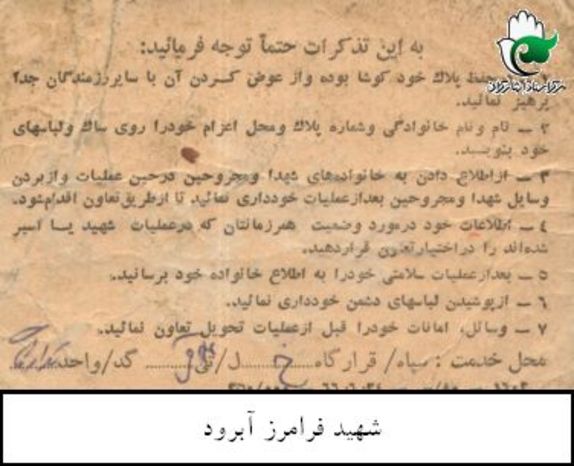 به این تذکرات حتماً توجه فرمائید:
حفظ پلاک خود کوشا بوده و از عوض کردن آن با سایر رزمندگان جداً
پرهیز نمائید.
۲ ــ نام و نام خانوادگی و شماره پلاک و محل اعزام خود را روی ساک و لباسهای
خود بنویسید.
۳ ــ از اطلاع دادن به خانواده‌های شهدا و مجروحین در حین عملیات و از بردن
وسایل شهدا و مجروحین بعد از عملیات خودداری نمائید تا از طریق تعاون اقدام شود.
۴ ــ اطلاعات خود در مورد وضعیت همرزمانتان که در عملیات شهید یا اسیر
شده‌اند را در اختیار تعاون قرار دهید.
۵ ــ بعد از عملیات سلامتی خود را به اطلاع خانواده خود برسانید.
۶ ــ از پوشیدن لباسهای دشمن خودداری نمائید.
۷ ــ وسائل، امانات خود را قبل از عملیات تحویل تعاون نمائید.
محل خدمت : سپاه/ قرارگاه ... ل/تیپ ... گد/واحد
شهید فرامرز آبرود